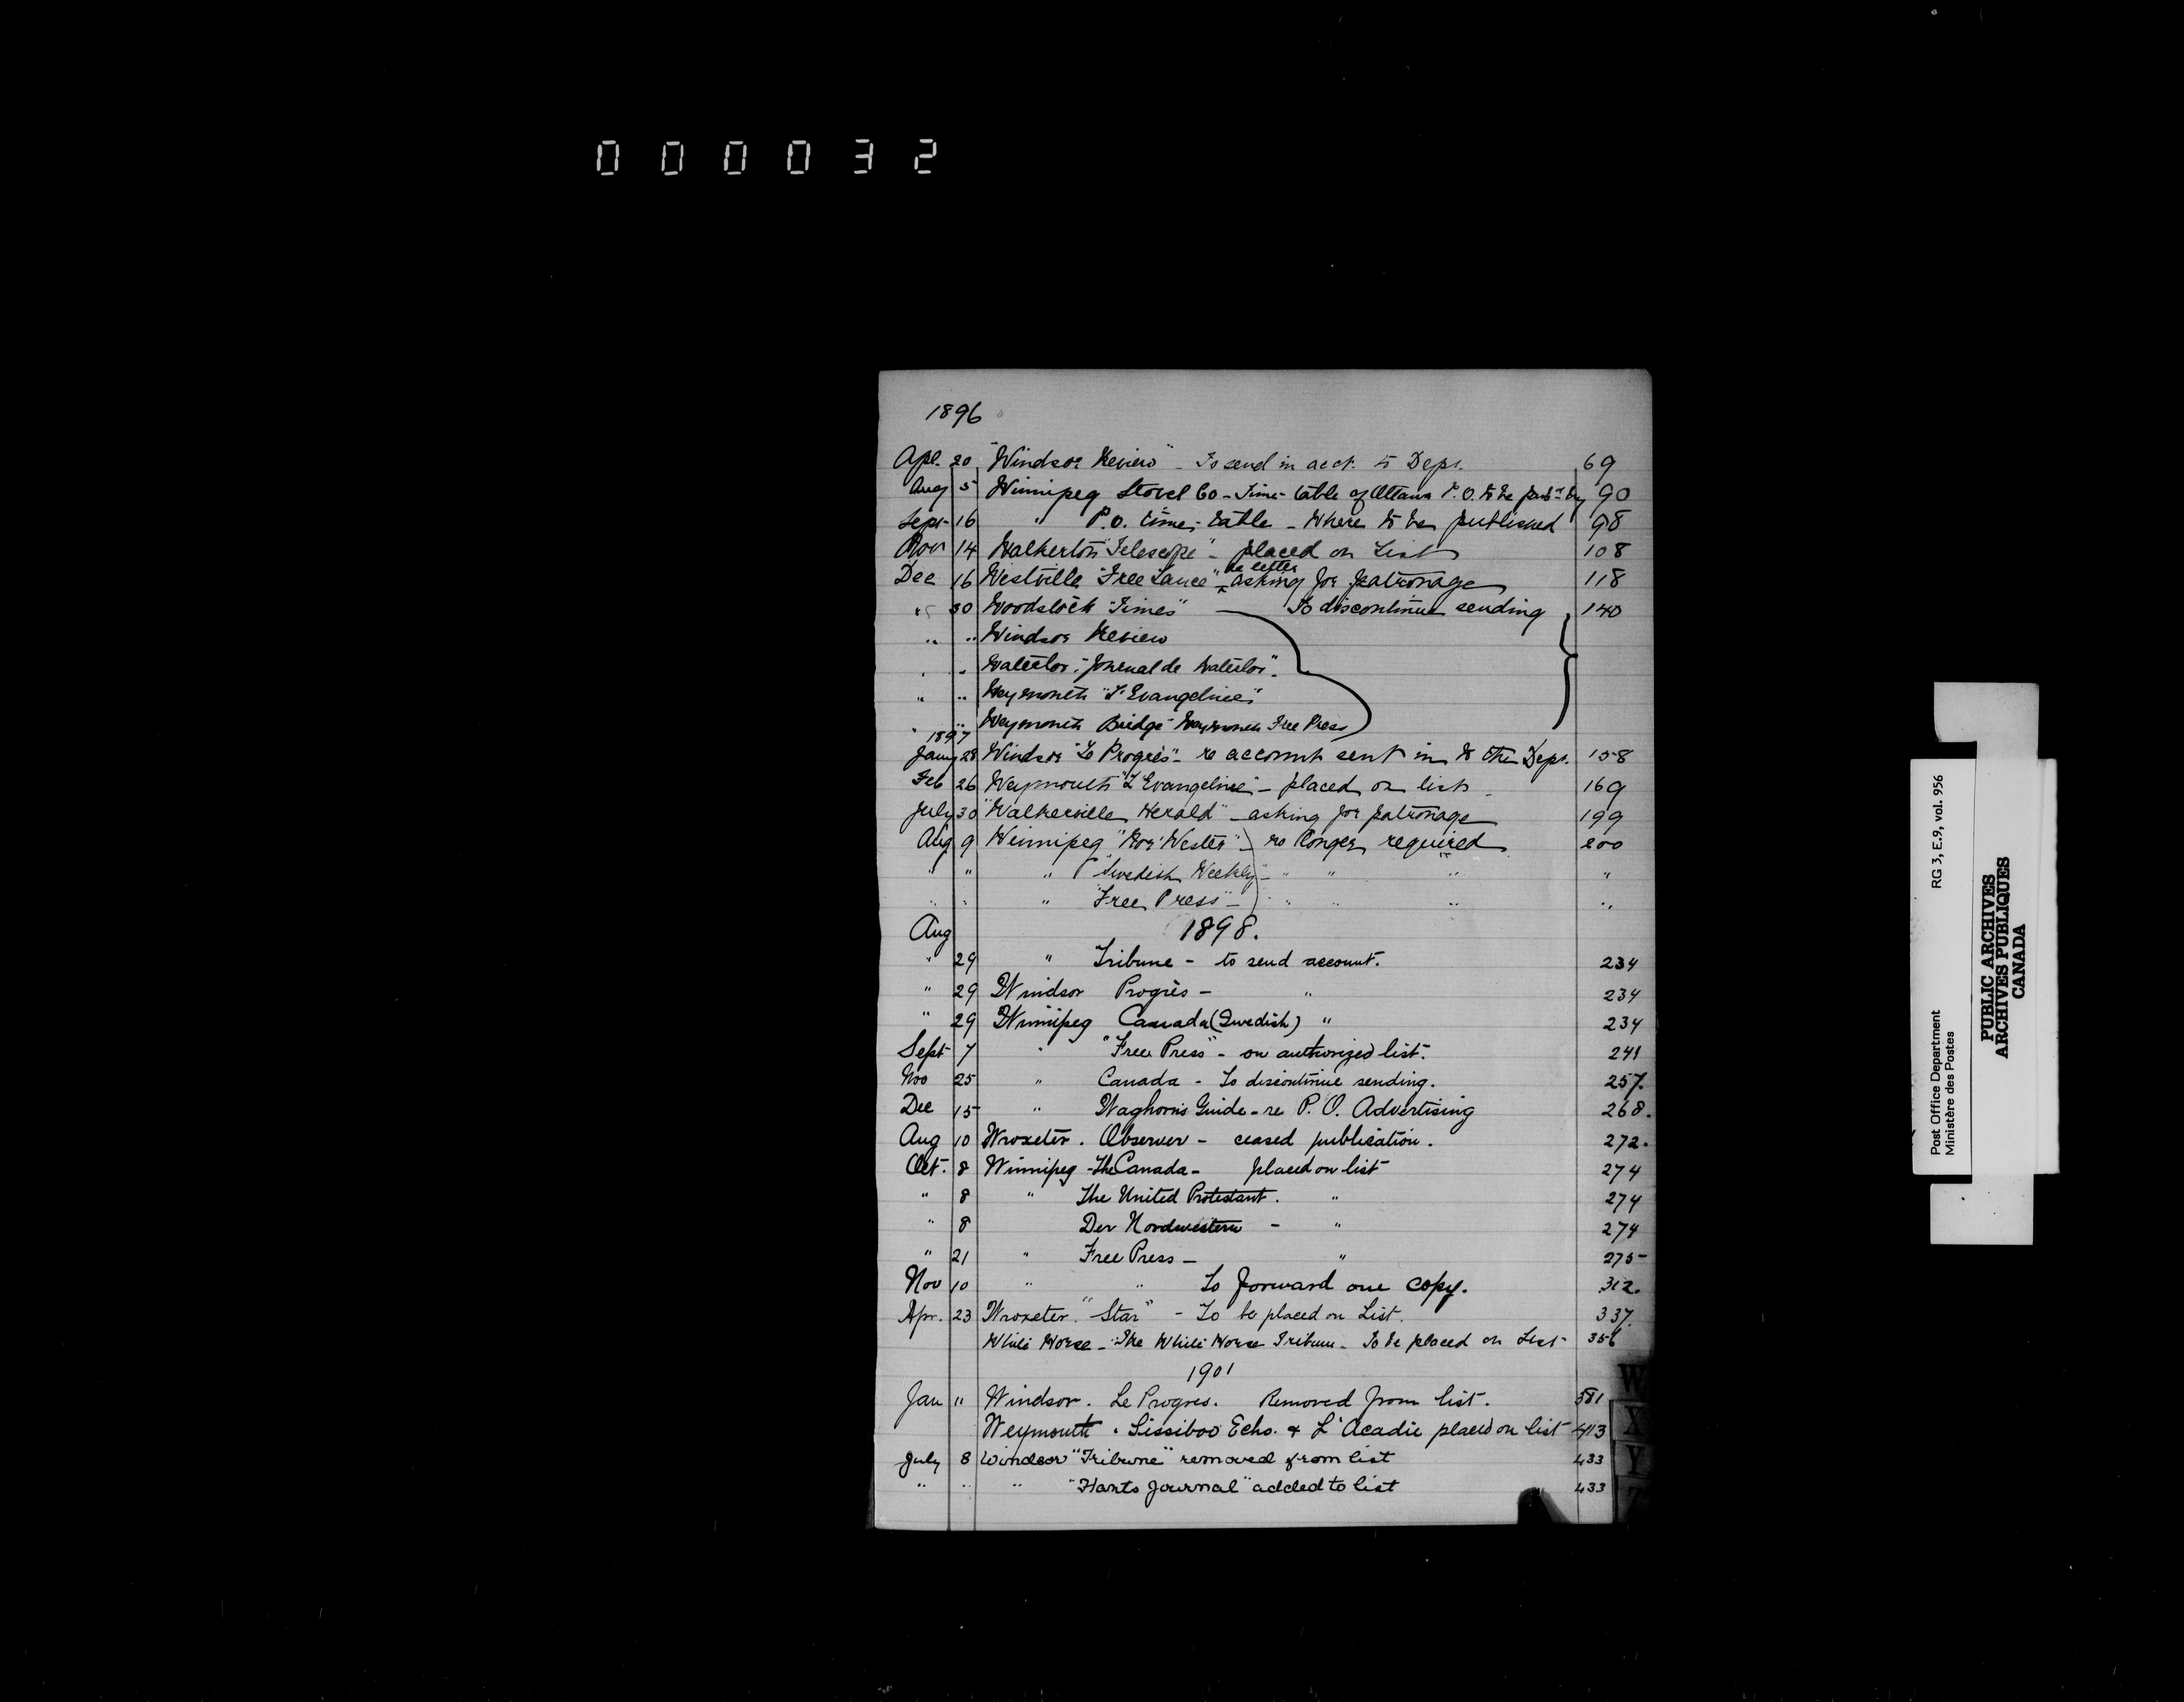 000032
1896
Apl. 20 "Windsor Review" - To send in acct. to Dept. 69
Aug 5 Winnipeg Stovel Co - Time-table of Ottawa P.O. to be pubd by 90
Sept 16 " P.O. time-table - Where to be published 98
Nov 14 Walkerton "Telescope" - placed on List 108
Dec 16 Westville "Free Lance" - re letter asking for patronage 118
" 30 Woodstock "Times" To discontinue sending 140
" " Windsor Review
" " Waterloo "Journal de Waterloo".
" " Weymouth "L'Evangeline"
" " Weymouth Bridge "Weymouth Free Press
1897
Jany 28 Windsor "Le Progrès" - re account sent in to the Dept. 158
Feb 26 Weymouth "L'Evangeline" - placed on list 169
July 30 "Walkerville Herald" - asking for patronage 199
Aug 9 Winnipeg "Nor'Wester" - no longer required 200
" " " "Swedish Weekly" - " " " "
" " " "Free Press" - " " " "
Aug 1898.
" 29 " Tribune - to send account. 234
" 29 Windsor Progrès - " 234
" 29 Winnipeg Canada (Swedish) " 234
Sept 7 " "Free Press" - on authorized list. 241
Nov 25 " Canada - To discontinue sending. 257.
Dec 15 " Waghorn's Guide - re P.O. Advertising 268.
Aug 10 Wroxeter. Observer - ceased publication. 272.
Oct. 8 Winnipeg - The Canada - placed on list 274
" 8 " The United Protestant. " 274
" 8 Der Nordwestern - " 274
" 21 " Free Press - " 275
Nov 10 " " To forward one copy. 312.
Apr. 23 Wroxeter. "Star" - To be placed on List. 337.
White Horse - The White Horse Tribune - To be placed on List 356
1901
Jan " Windsor. Le Progres. Removed from list. 381
Weymouth. Sissiboo Echo. & L'Acadie placed on list 413
July 8 Windsor "Tribune" removed from list 433
" " " "Hants Journal" added to list 433
W
X
Y
Z
Post Office Department RG 3, E.9, vol. 956
Ministère des Postes
PUBLIC ARCHIVES
ARCHIVES PUBLIQUES
CANADA